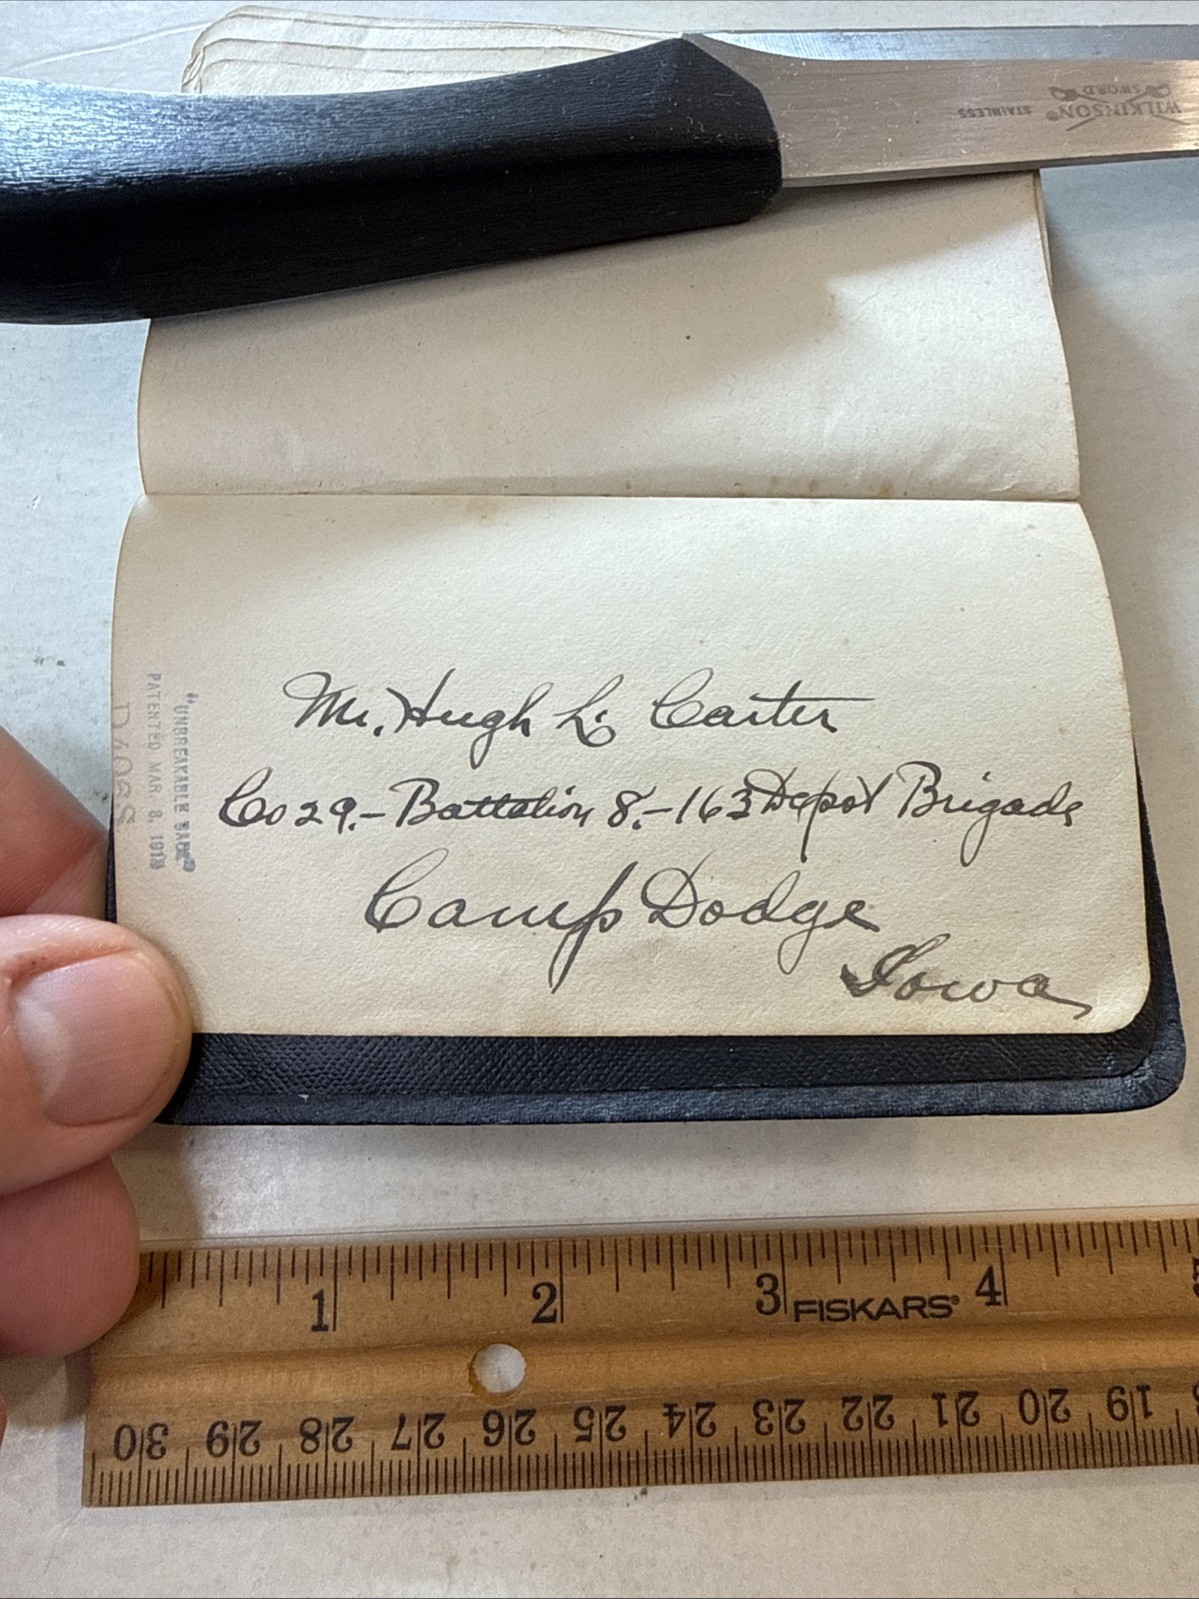 WILKINSON® STAINLESS
SWORD
Mr. Hugh L. Carter
Co 29.- Battalion 8.- 163 Depot Brigade
Camp Dodge
Iowa
"UNBREAKABLE BACK"
PATENTED MAR. 8, 1913
1 2 3 FISKARS® 4 5
30 29 28 27 26 25 24 23 22 21 20 19